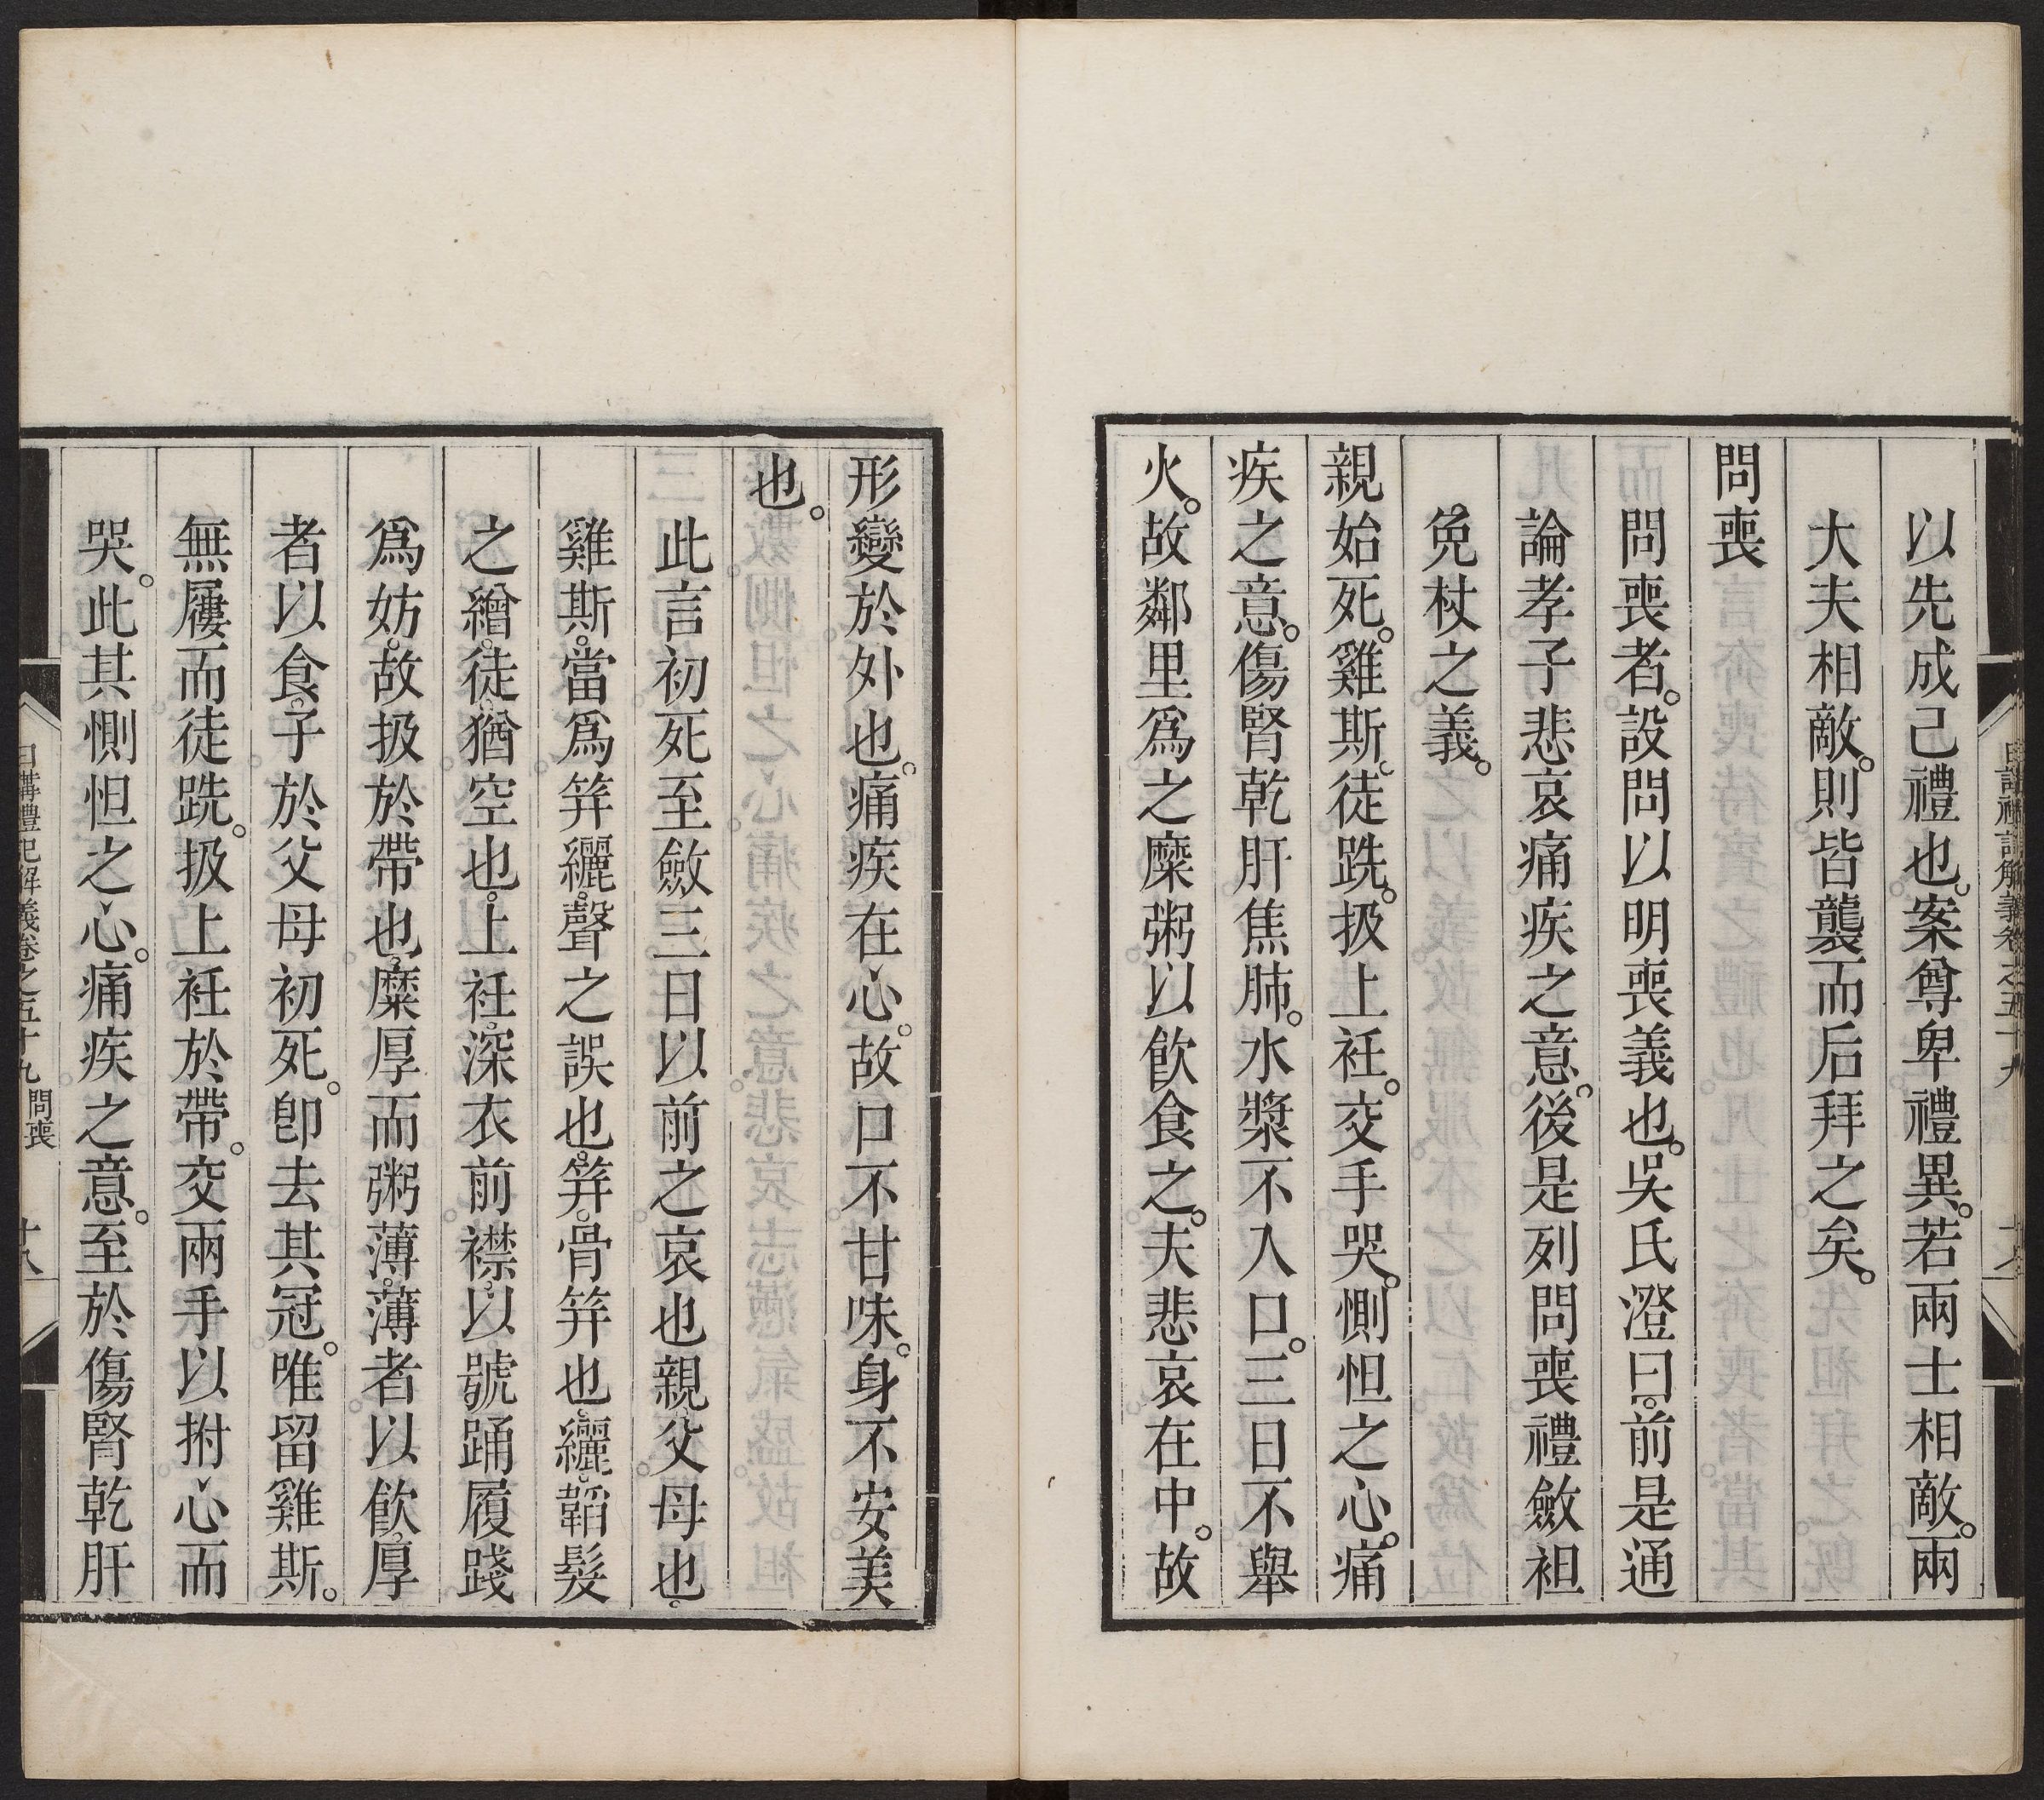 以先成己禮也。案尊卑禮異。若兩士相敵。兩
大夫相敵。則皆襲而后拜之矣。
問喪
問喪者。設問以明喪義也。吳氏澄曰。前是通
論孝子悲哀痛疾之意。後是列問喪禮斂袒
免杖之義。
親始死。雞斯。徒跣。扱上衽。交手哭。惻怛之心。痛
疾之意。傷腎乾肝焦肺。水漿不入口。三日不舉
火。故鄰里爲之糜粥以飮食之。夫悲哀在中。故
形變於外也。痛疾在心。故口不甘味。身不安美
也。
此言初死至斂三日以前之哀也。親。父母也。
雞斯。當爲笄纚。聲之誤也。笄。骨笄也。纚。韜髮
之繒。徒。猶空也。上衽。深衣前襟。以號踊履踐
爲妨。故扱於帶也。糜厚而粥薄。薄者以飮。厚
者以食。子於父母初死。卽去其冠。唯留雞斯。
無屨而徒跣。扱上衽於帶。交兩手以拊心而
哭。此其惻怛之心。痛疾之意。至於傷腎乾肝
日講禮記解義卷之五十九 問喪 十八